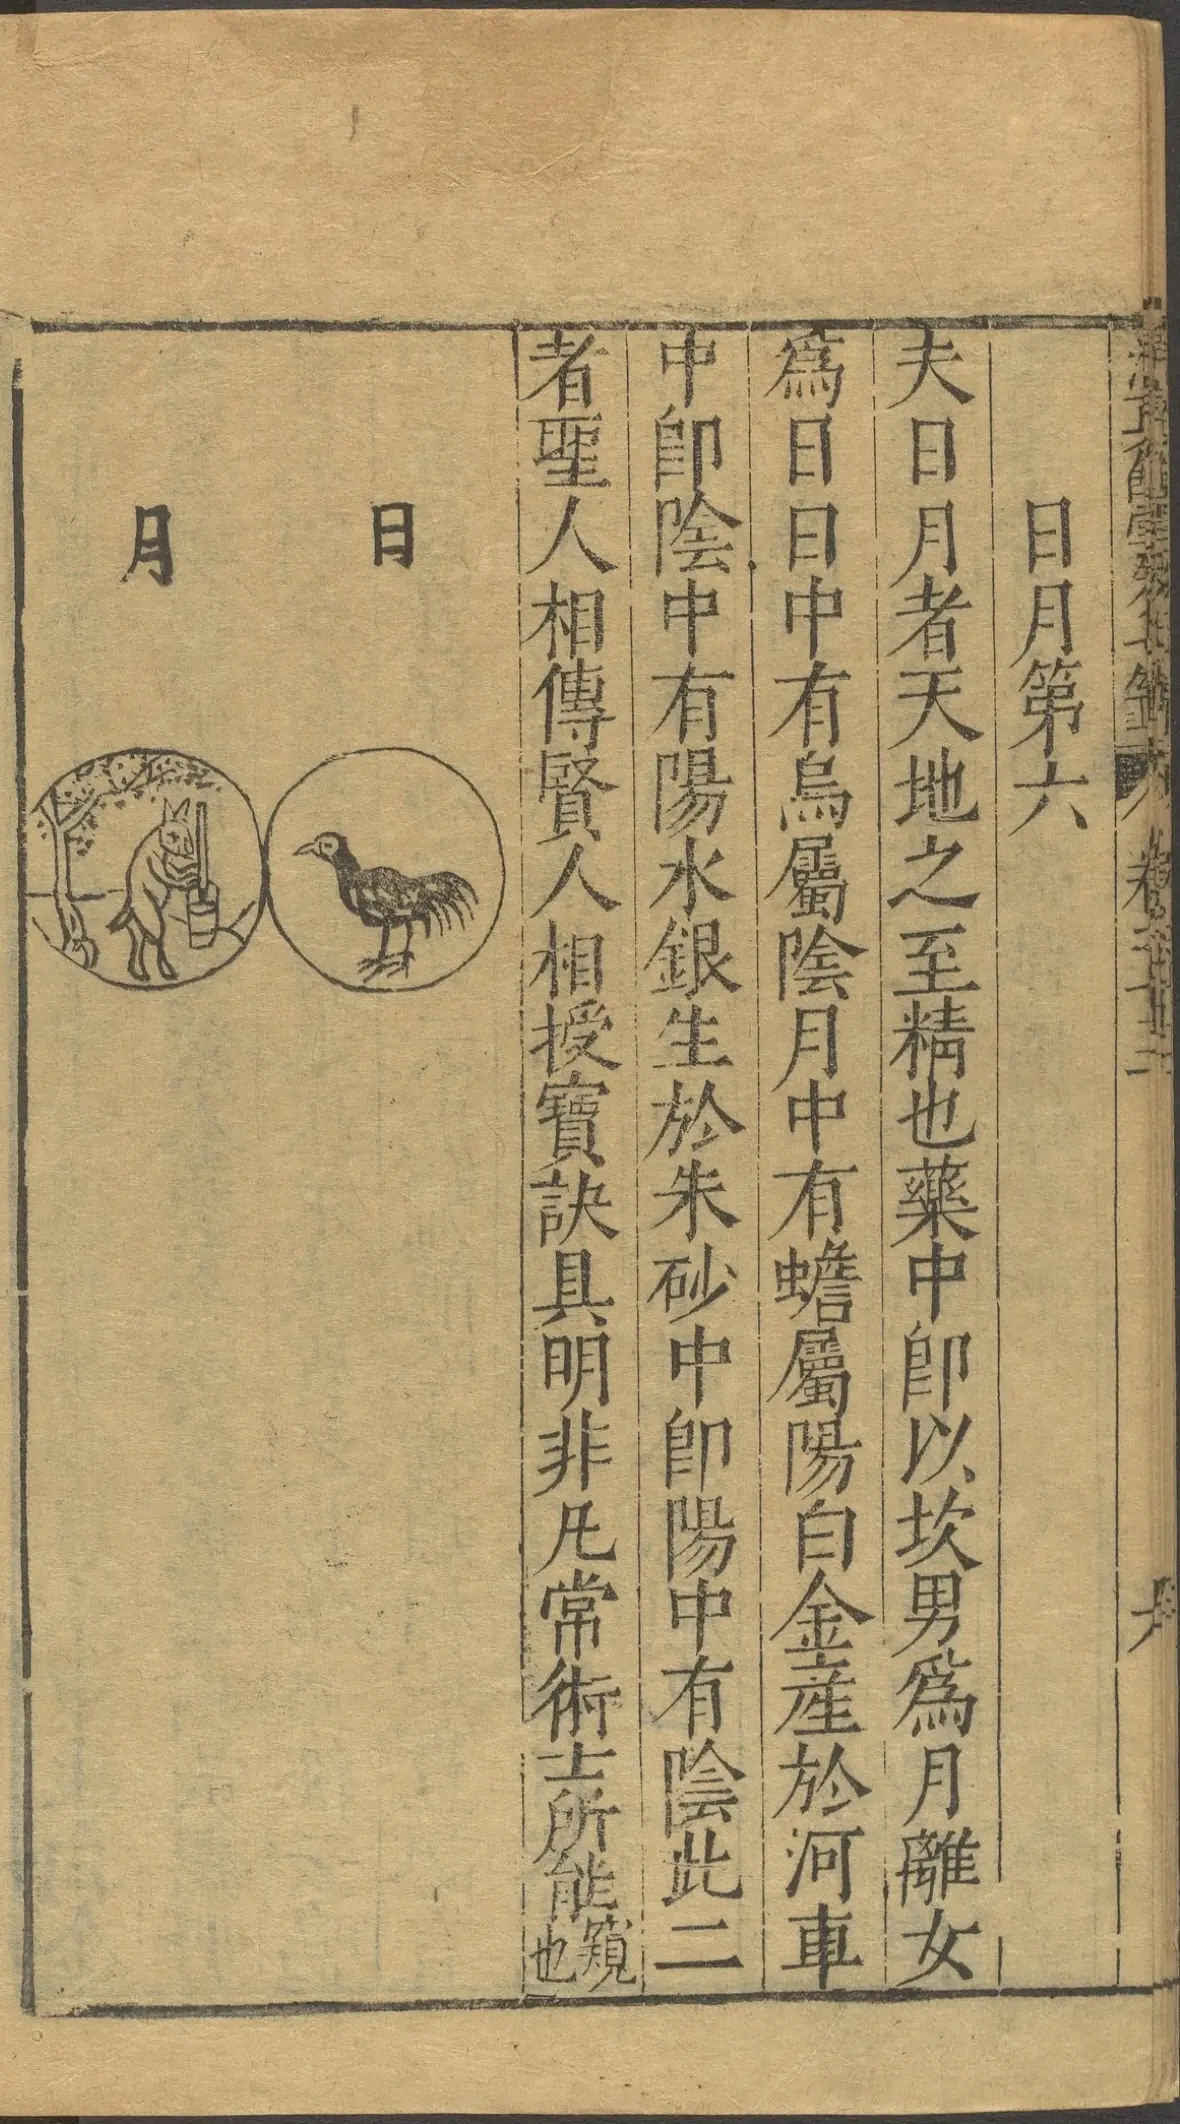 日月第六
夫日月者天地之至精也藥中卽以坎男爲月離女
爲日日中有烏屬陰月中有蟾屬陽白金產於河車
中卽陰中有陽水銀生於朱砂中卽陽中有陰此二
者聖人相傳賢人相授寶訣具明非凡常術士所能窺也
日
月